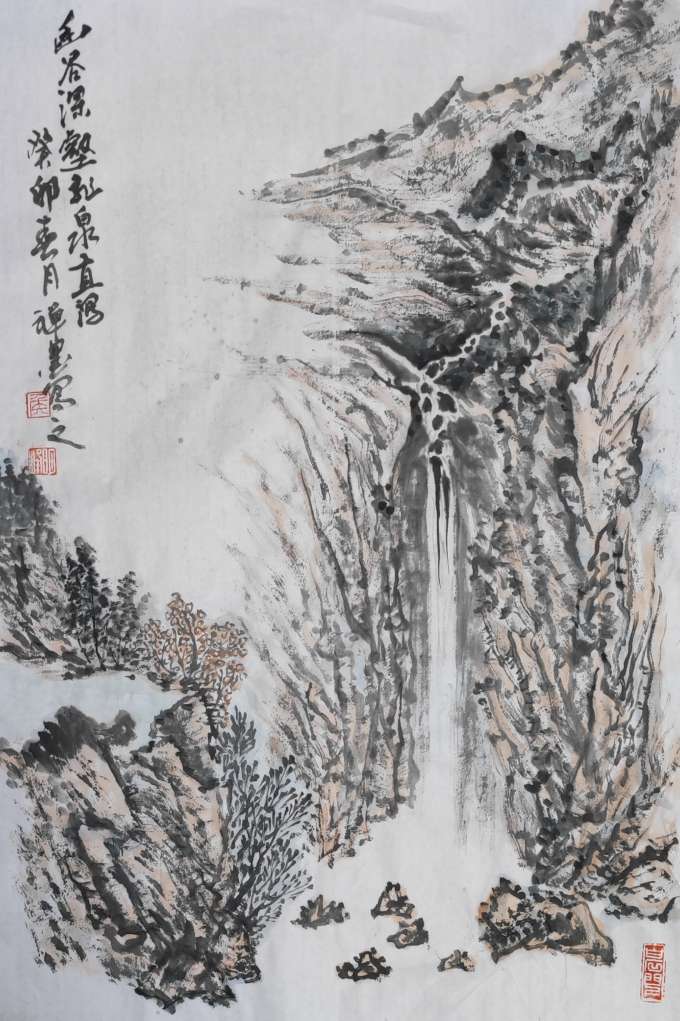 幽谷深壑乱泉直泻
癸卯春月禅愚写之